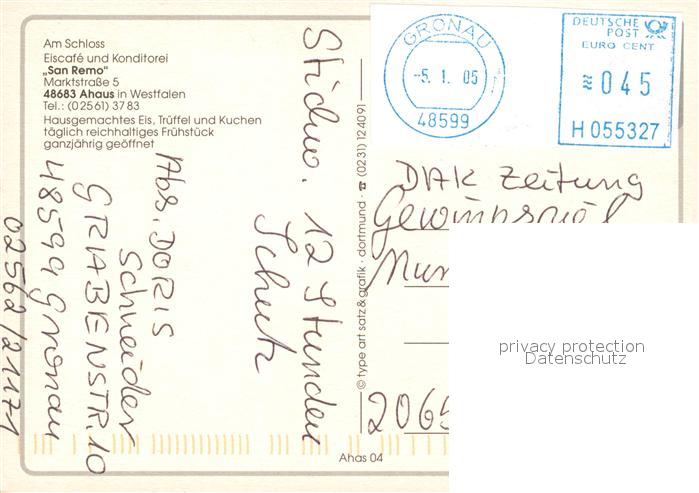 Am Schloss
Eiscafé und Konditorei
„San Remo”
Marktstraße 5
48683 Ahaus in Westfalen
Tel.: (0 25 61) 37 83
Hausgemachtes Eis, Trüffel und Kuchen
täglich reichhaltiges Frühstück
ganzjährig geöffnet
Stichw. 12 Stunden
Schutz
Abs. DORIS
Schneider
GRABENSTR. 10
48599 Gronau
02562/21171
© type art satz & grafik · dortmund · ☎ (0231) 124091
GRONAU
-5. 1. 05
48599
DEUTSCHE
POST
EURO CENT
≋ 045
H 055327
DAK Zeitung
Gewinnspiel
2065
privacy protection
Datenschutz
Ahas 04